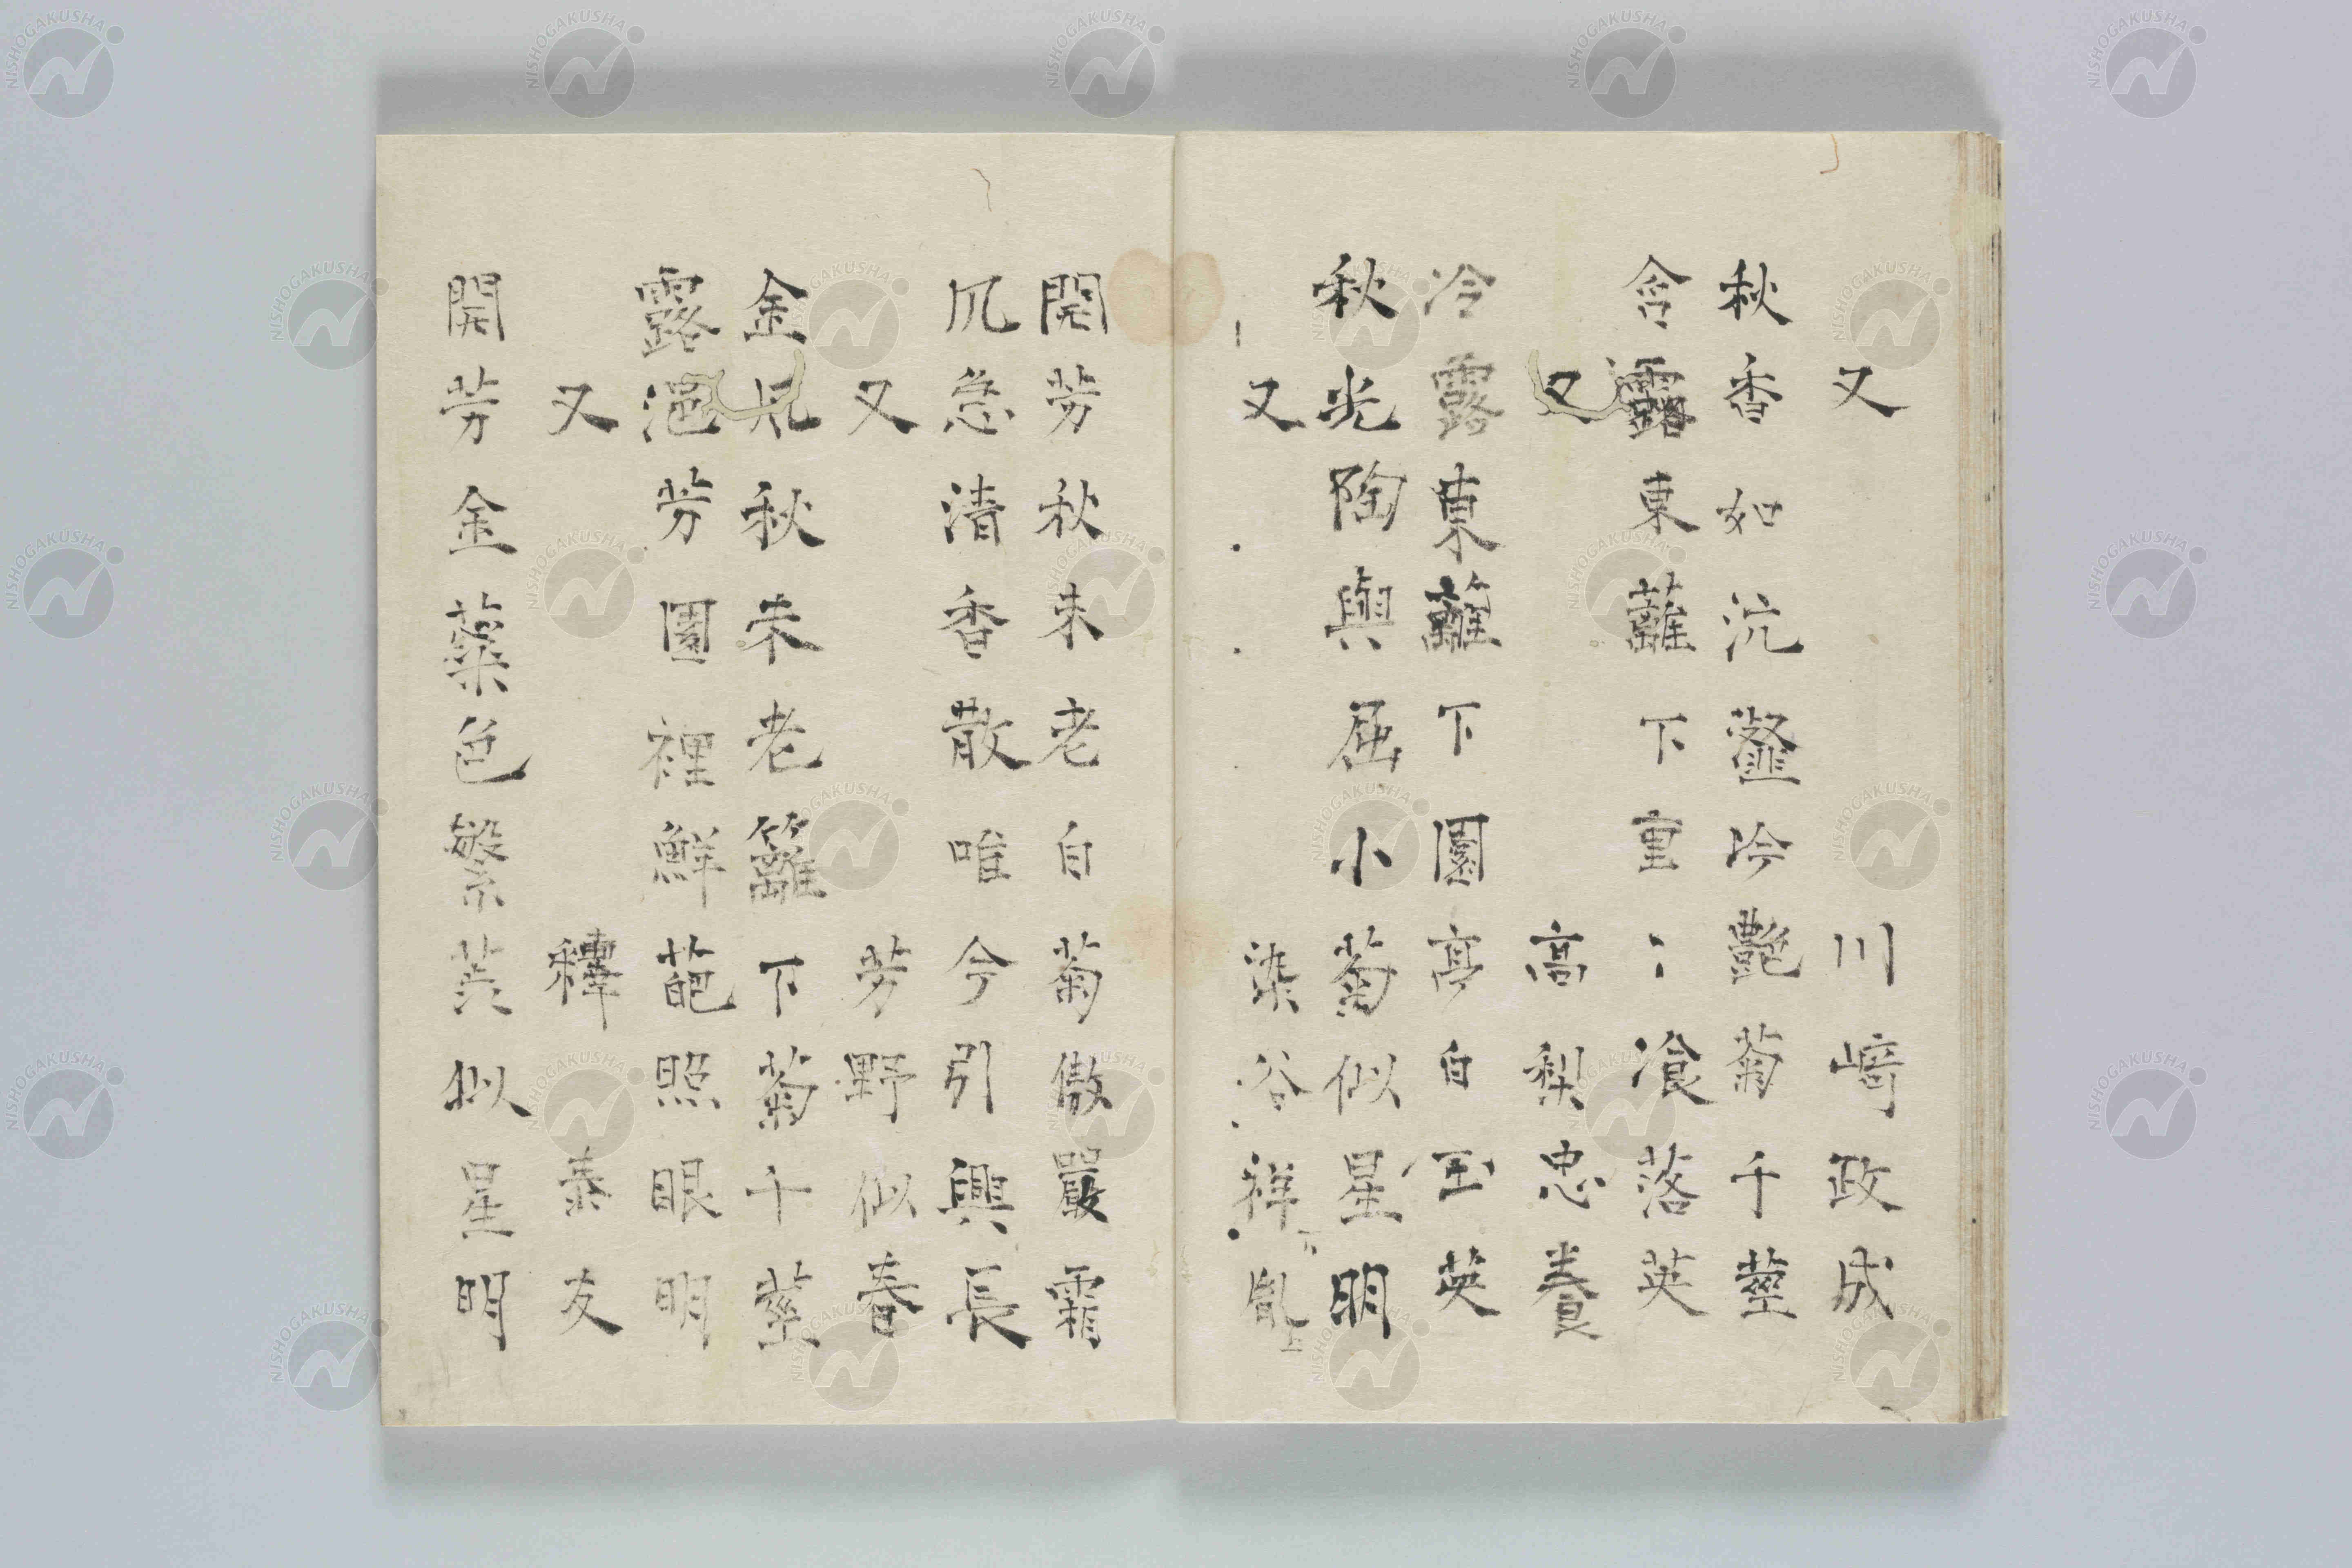 又 川﨑政成
秋香如沆瀣吟艶菊千莖
含露東蘺下重〻飡落英
又 高梨忠養
冷露東蘺下園亭自玉英
秋光陶與屈小菊似星明
又 染谷祥胤
開芳秋未老自菊傲嚴霜
風急清香散唯今引興長
又 芳野似春
金風秋未老籬下菊千莖
露浥芳園裡鮮葩照眼明
又 釋泰友
開芳金蘂色繁英似星明
NISHOGAKUSHA